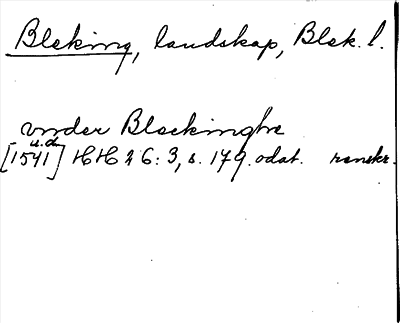 Bleking, landskap, Blek. l.
vnder Bleckinghe
u.d.
[1541] HH 26:3, s. 179. odat. renskr.